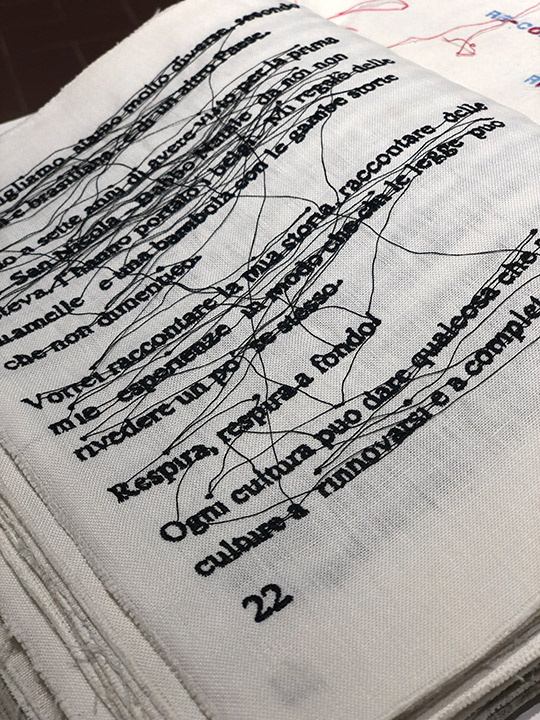 gliamo, siamo molto diverse, secondo
e brasiliana, e di un altro Paese.
a sette anni di avere visto per la prima
San Nicola Babbo Natale da noi non
teva. I hanno portato i belgi. Mi regalò delle
e una bambola con le gambe storte
che non dimentico.
Vorrei raccontare la mia storia, raccontare delle
mie esperienze in modo che chi le legge può
rivedere un po' se stesso.
Respira, respira a fondo!
Ogni cultura può dare qualcosa che
culture a rinnovarsi e a complet
22
RE-CO